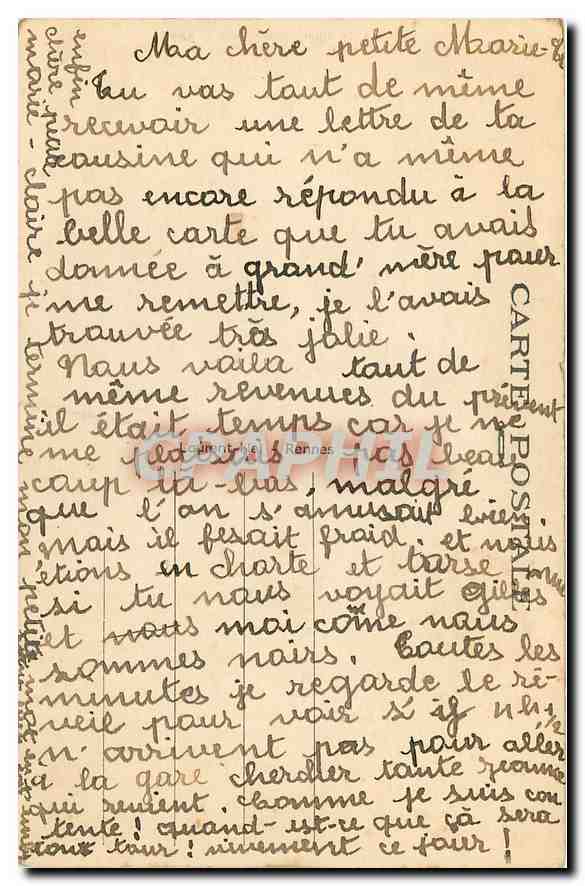 Ma chère petite Marie-
Tu vas tout de même
recevoir une lettre de ta
cousine qui n'a même
pas encore répondu à la
belle carte que tu avais
donnée à grand' mère pour
me remettre, je l'avais
trouvée très jolie.
Nous voila tout de
même revenues du
il était temps car je ne
me plaisais pas beau
coup là-bas, malgré
que l'on s'amusait bien
mais il fesait froid. et nous
étions en Charte et
si tu nous voyait Gilles
et nous moi côme nous
sommes noirs. Toutes les
minutes je regarde le ré-
veil pour voir s'il 11h 1/2
n'arrivent pas pour aller
a la gare chercher tante Jeanne
qui revient. Comme je suis con
tente! quand-est-ce que çà sera
tour! vivement ce jour!
enfin
chère petite
marie-claire je termine mon petit mot en
CARTE POSTALE
CPAPHIL
Laurent-Nel Rennes